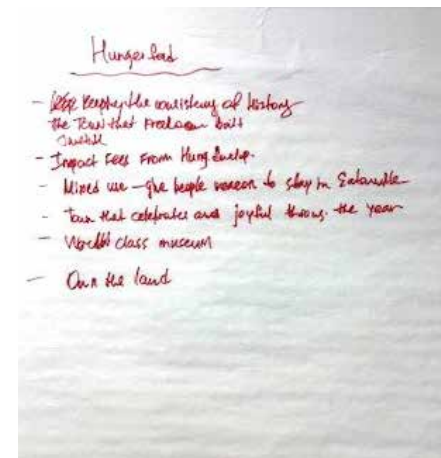 Hungerford
- Keeping the consistency of history
the Town that Freedom Built
- Impact Fees From Hung
- Mixed use - give people reason to stay in Eatonville
- Town that celebrates and joyful throug. the year
- World class museum
- Own the land